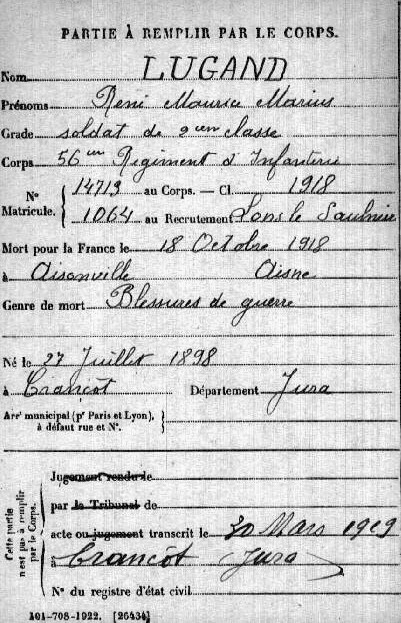 PARTIE À REMPLIR PAR LE CORPS.
Nom LUGAND
Prénoms René Maurice Marius
Grade soldat de 2eme classe
Corps 56eme Régiment d'Infanterie
N° Matricule. 14713 au Corps. — Cl. 1918
1064 au Recrutement Lons le Saulnier
Mort pour la France le 18 Octobre 1918
à Aisonville Aisne
Genre de mort Blessures de guerre
Né le 27 Juillet 1898
à Crançot Département Jura
Arrt municipal (pr Paris et Lyon), à défaut rue et N°.
Cette partie n'est pas à remplir par le Corps.
Jugement rendu le
par le Tribunal de
acte ou jugement transcrit le 30 Mars 1919
à Crançot (Jura)
N° du registre d'état civil
101-708-1922. [26434]